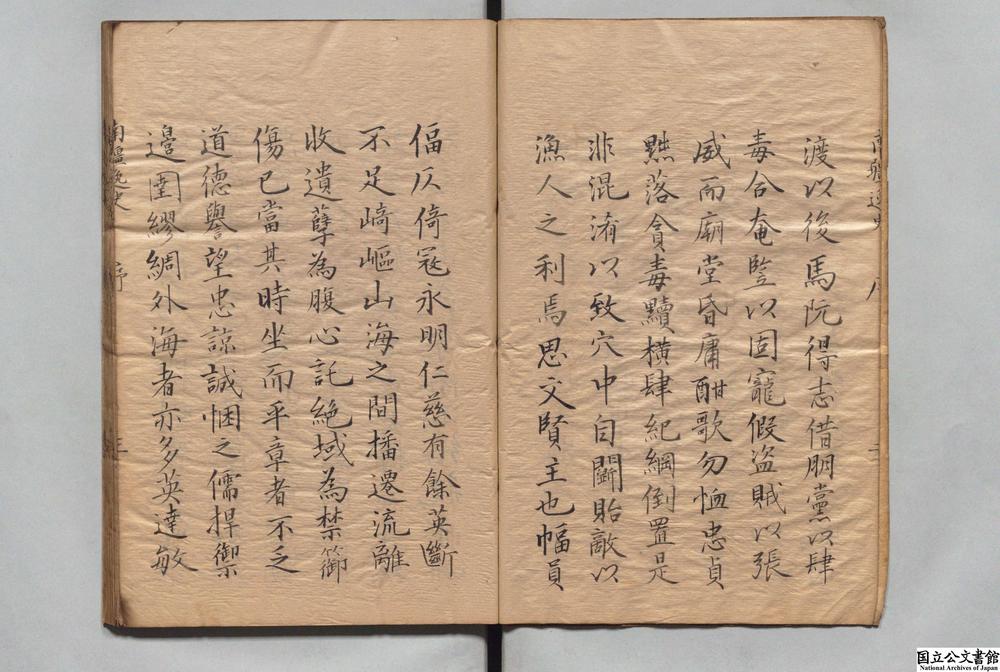 渡以後馬阮得志借朋黨以肆
毒合奄豎以固寵假盜賊以張
威而廟堂昏庸酣歌勿恤忠貞
黜落貪毒黷橫肆紀綱倒置是
非混淆以致穴中自鬬貽敵以
漁人之利焉思文賢主也幅員
偪仄倚寇永明仁慈有餘英斷
不足崎嶇山海之間播遷流離
收遺孽為腹心託絕域為禁籞
傷已當其時坐而平章者不乏
道德譽望忠諒誠悃之儒捍禦
邊圉繆綢外海者亦多英達敏
南疆逸史 序
国立公文書館
National Archives of Japan